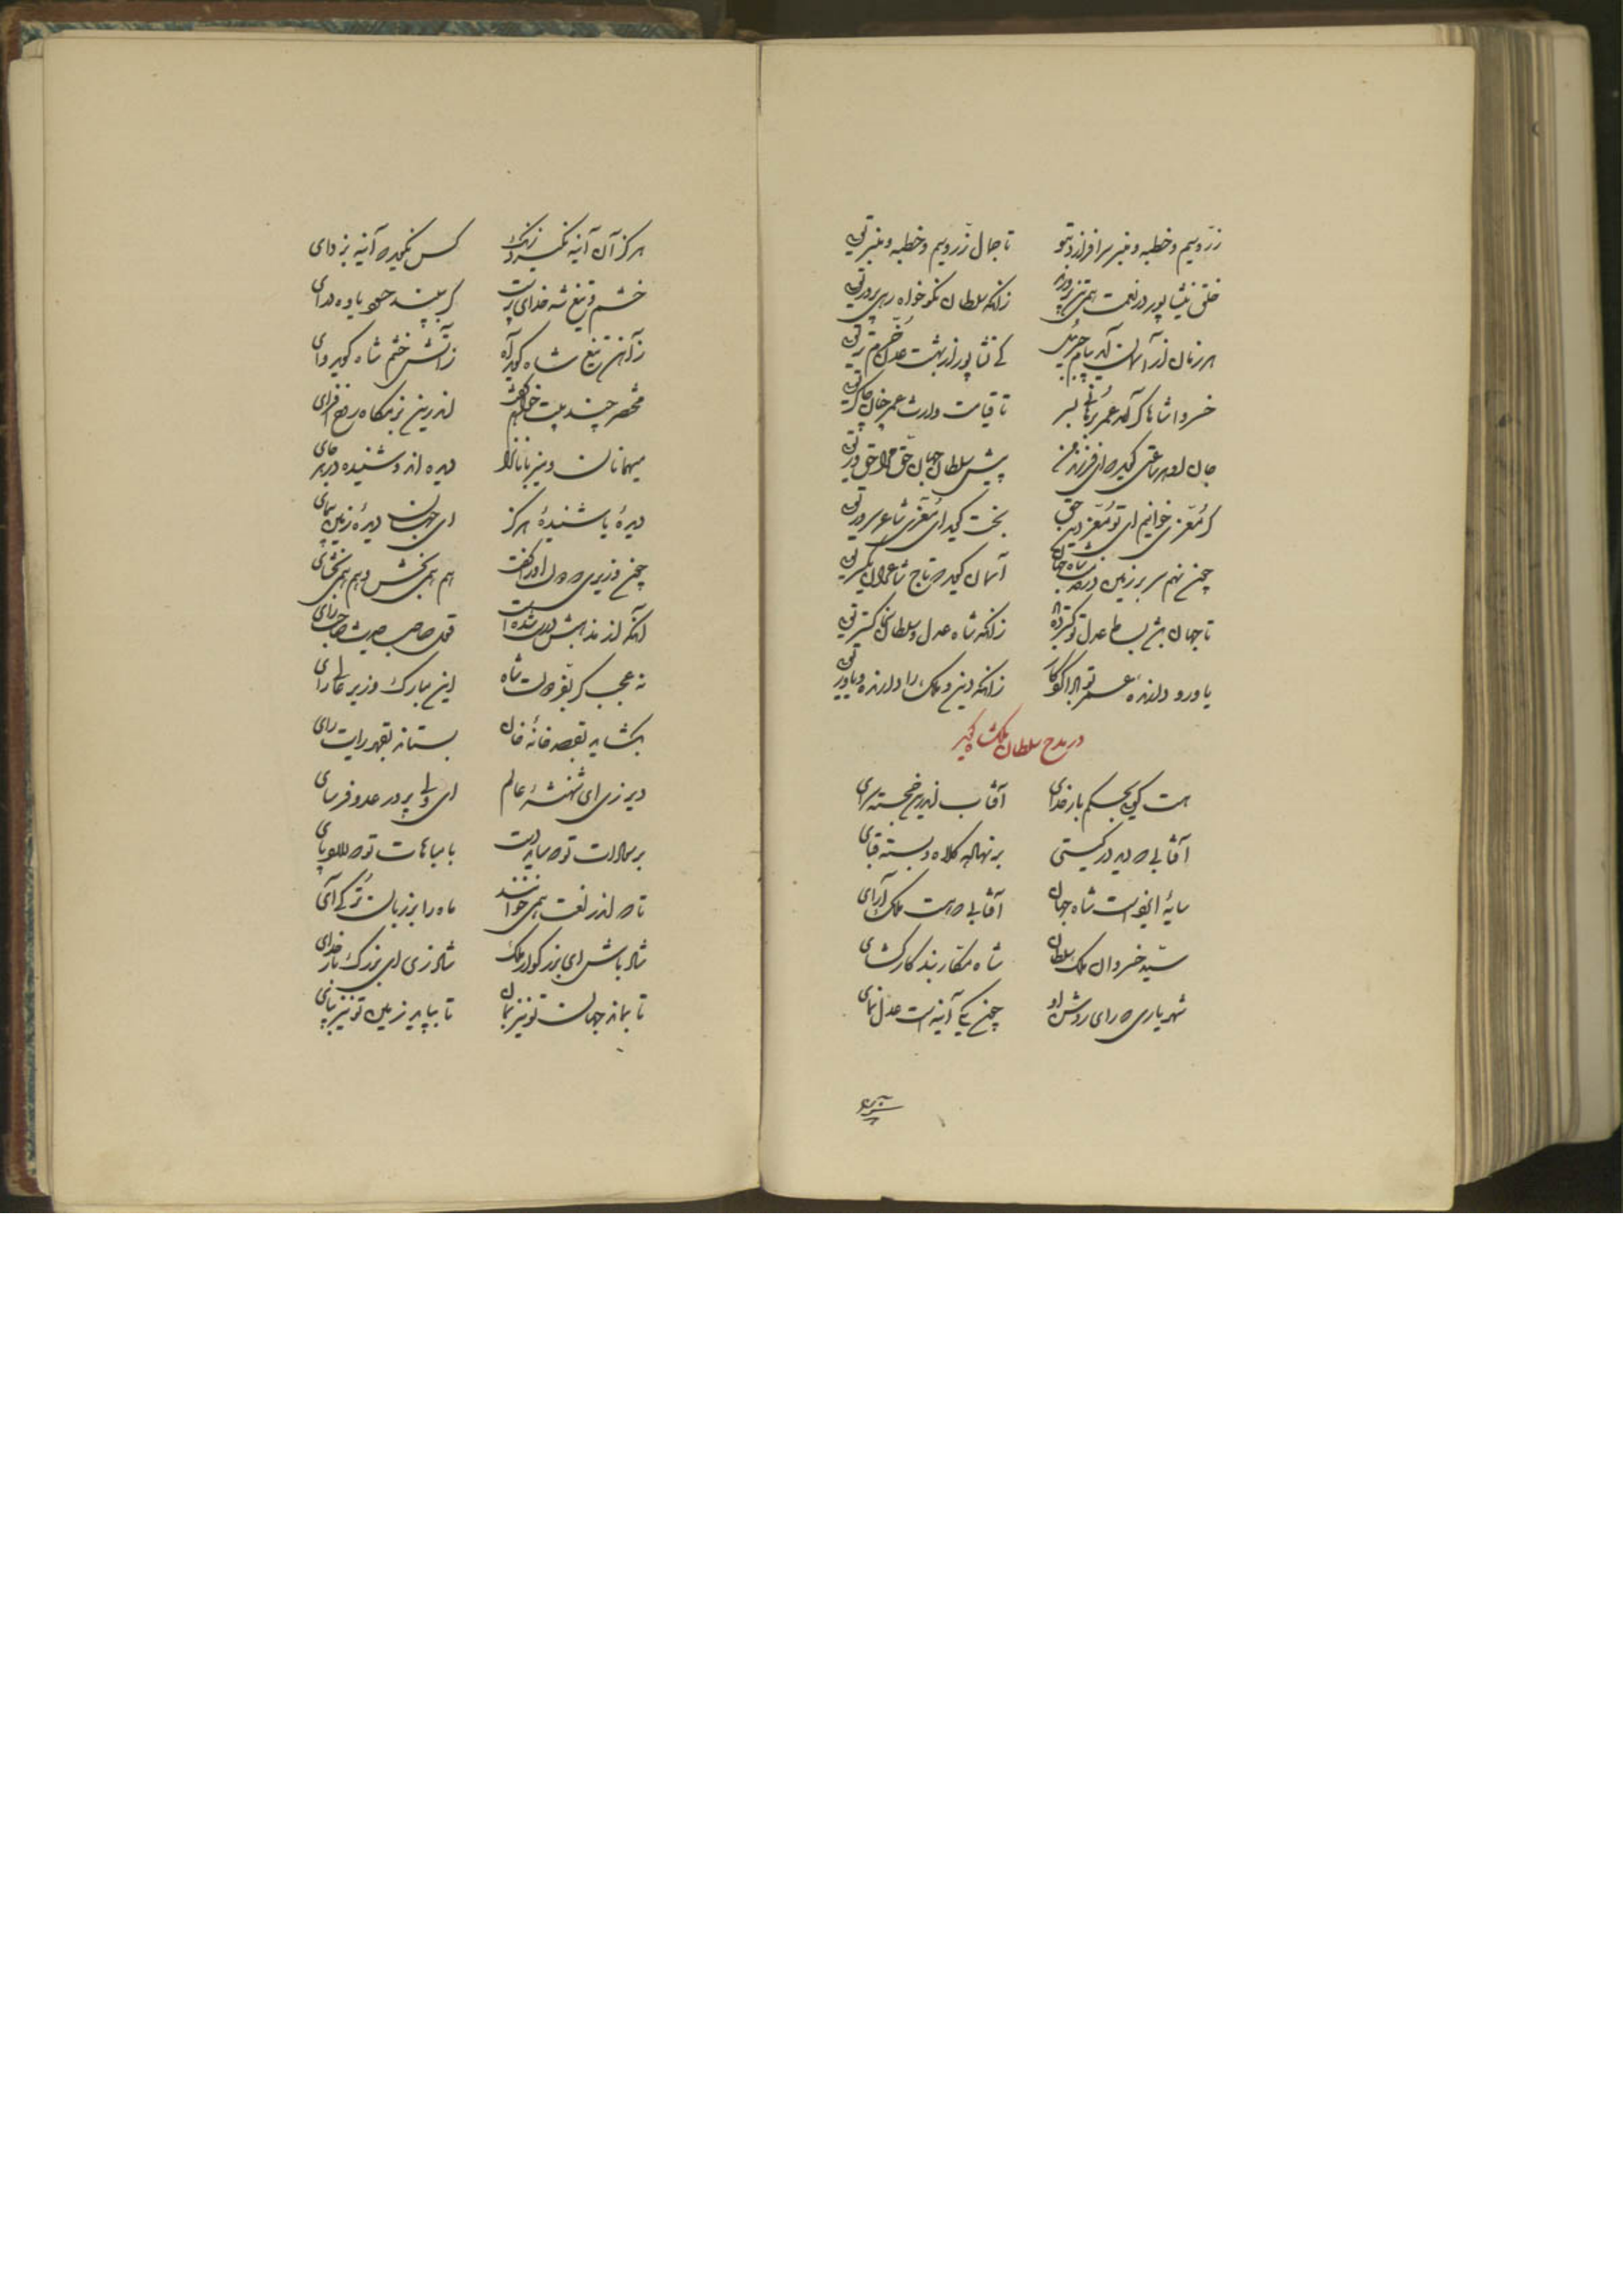 زر و سیم و خطبه و منبر سرافرازد بتو تا جمال زر و سیم و خطبه و منبر تویی
خلق نیشابور در نعمت همی پرورد زانکه سلطان نکوخواه رهی پرور تویی
هر زمان از آسمان آید پیام جبرئیل کای نشابور از بهشت عدن خرم‌تر تویی
خسروا شاها گر آمد عمر برهانی بسر تا قیامت وارث عمر
جان او هر ساعتی گوید که ای فرزند من پیش سلطان جهان حق مرا حق‌ور تویی
گر معزی خوانیم ای تو معز دین حق بخت گوید ای معزی شاعر سرور تویی
چون نهم سر بر زمین در خدمت شاه جهان آسمان گوید که تاج شاعران یکسر تویی
تا جهان باشد بساط عدل تو گسترده باد زانکه شاه عدل و سلطان سخن گستر تویی
یاور و دارنده عمر تو بادا کردگار زانکه دین و ملک را دارنده و یاور تویی
در مدح سلطان ملکشاه گوید
هست گویی بحکم بار خدای آفتاب اندرین خجسته سرای
آفتابی که دید در گیتی بر نهاده کلاه و بسته قبای
سایهٔ ایزدست شاه جهان آفتابی که هست ملک آرای
سید خسروان ملک سلطان شاه بند کارگشای
شهریاری که رای روشن او چون یکی آینه است عدل نمای
هرگز آن آینه نگیرد زنگ کس نگوید که آینه بزدای
خشم و تیغ شه خدای پرست گر ببیند حسود یاوه درای
زآهن تیغ شاه گوید آه زآتش خشم شاه گوید وای
مختصر چند بیت خواهم گفت اندرین بزمگاه روح افزای
میهمانان و میزبانان را دیده اند و شنیده در هر جای
دیدهٔ یا شنیدهٔ هرگز ای جهان دیدهٔ زمین پیمای
چون وزیری که دولت او را گفت هم همی بخش و هم همی بخشای
آنکه اندر مذهبش درست شدست قول صاحب حدیث صاحب رای
نه عجب گر بفر دولت شاه این مبارک وزیر عالی رای
بگشاید بقصد خانهٔ خان بستاند بقهر رایت رای
دیر زی ای شهنشه عالم ای ولی پرور عدو فرسای
بر سماوات تو که ساید دست با مباهات تو که دارد پای
تا که اندر لغت همی خوانند ماه را بر زبان ترکی آی
شاد باش ای بزرگوار ملک شاد زی ای بزرگ بار خدای
تا بماند جهان تو نیز بمان تا بپاید زمین تو نیز بپای